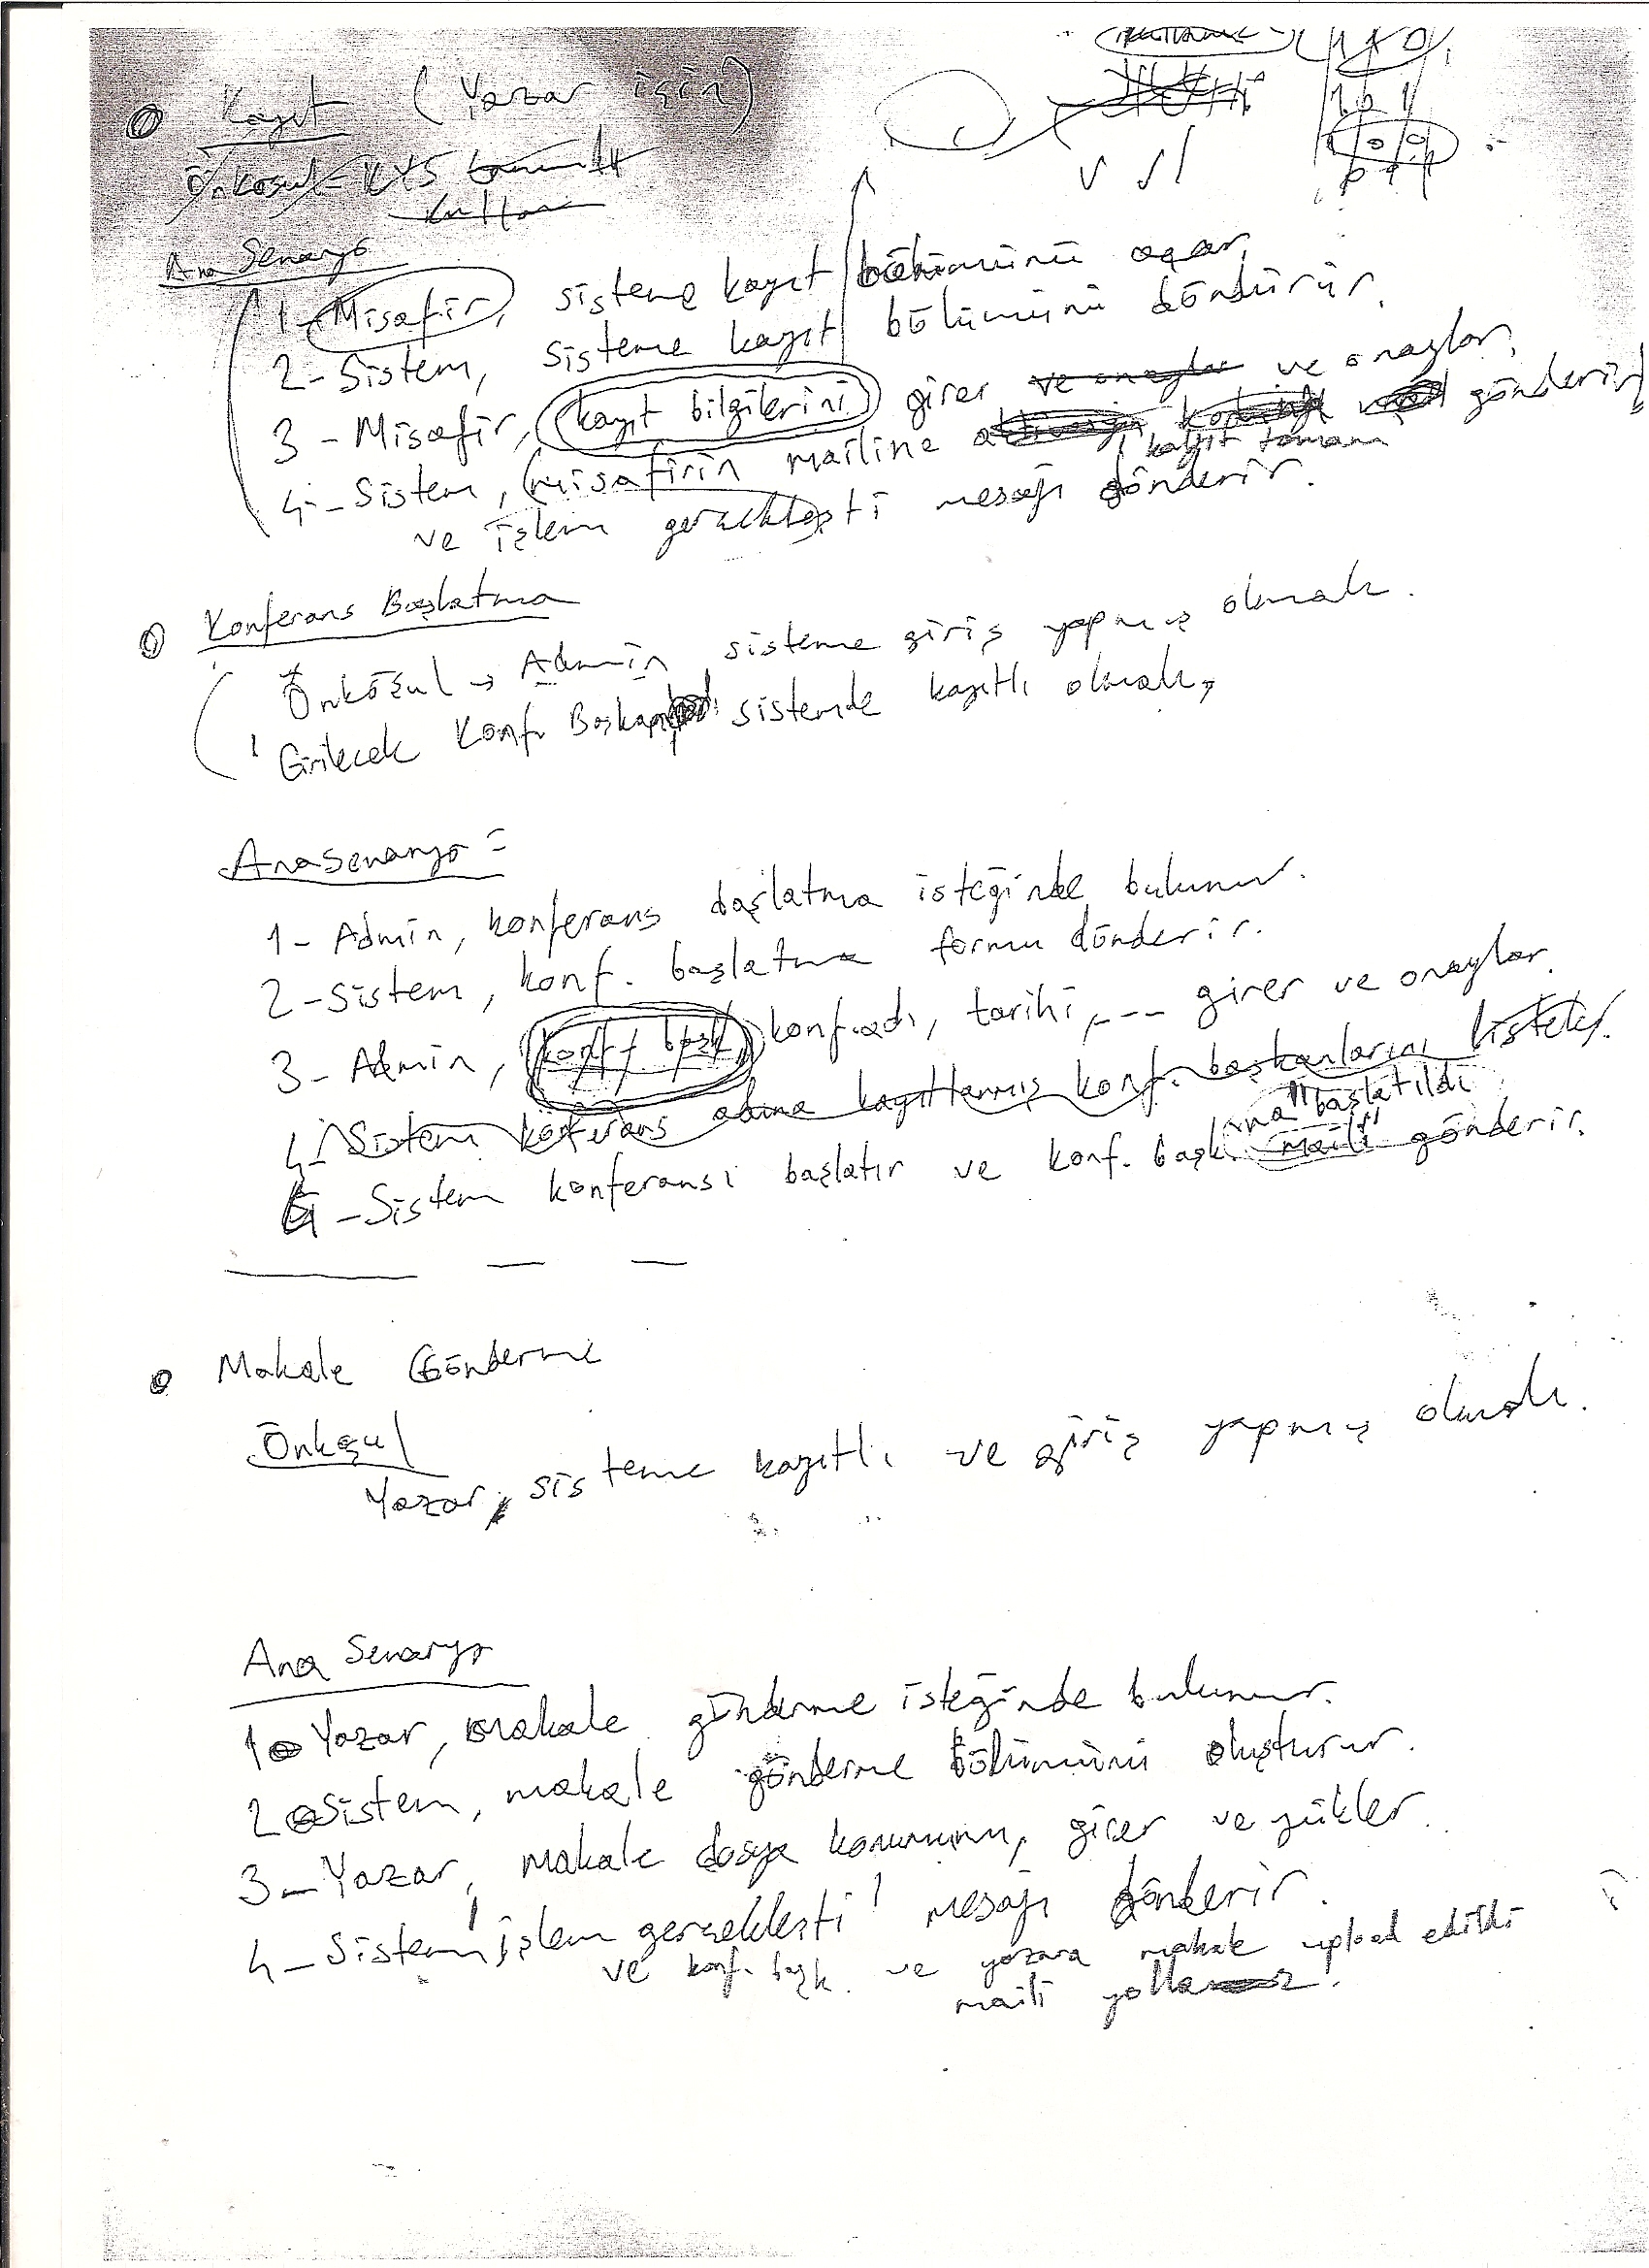 Kayıt (Yazar için)
Önkoşul = KYS
Ana Senaryo
1- Misafir, sisteme kayıt bölümünü açar,
2- Sistem, sisteme kayıt bölümünü döndürür.
3- Misafir, kayıt bilgilerini girer ve onaylar ve onaylar,
4- Sistem, misafirin mailine gönderir
kayıt tamam
ve işlem gerçekleşti mesajı gönderir.
Konferans Başlatma
Önkoşul → Admin, sisteme giriş yapmış olmalı.
Girilecek Konf. Başkanı sistemde kayıtlı olmalı,
Ana Senaryo =
1- Admin, konferans başlatma isteğinde bulunur.
2- Sistem, konf. başlatma formu dönderir.
3- Admin, konf. başk, konf. adı, tarihi, --- girer ve onaylar.
4- Sistem konferans adına kayıtlanmış konf. başkanlarını listeler.
na "başlatıldı
4- Sistem konferansı başlatır ve konf. başk. maili" gönderir.
Makale Gönderme
Önkoşul
Yazar, sisteme kayıtlı ve giriş yapmış olmalı.
Ana Senaryo
1- Yazar, makale gönderme isteğinde bulunur.
2- Sistem, makale gönderme bölümünü oluşturur.
3- Yazar, makale dosya konumunu, girer ve yükler.
4- Sistem 'işlem gerçekleşti' mesajı gönderir.
ve konf. başk. ve yazara makale upload edildi
maili yollar.